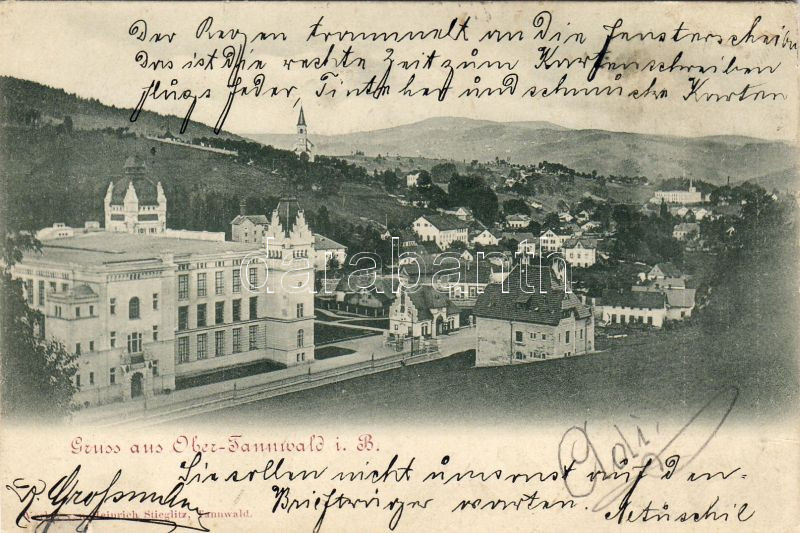 Der Regen trommelt an die Fensterscheiben
Das ist die rechte Zeit zum Kartenschreiben
flugs Feder, Tinte her und schmucke Karten
darabanth.com
Gruss aus Ober-Tannwald i. B.
Sie sollen nicht umsonst auf den
Briefträger warten.
Heinrich Stieglitz, Tannwald.